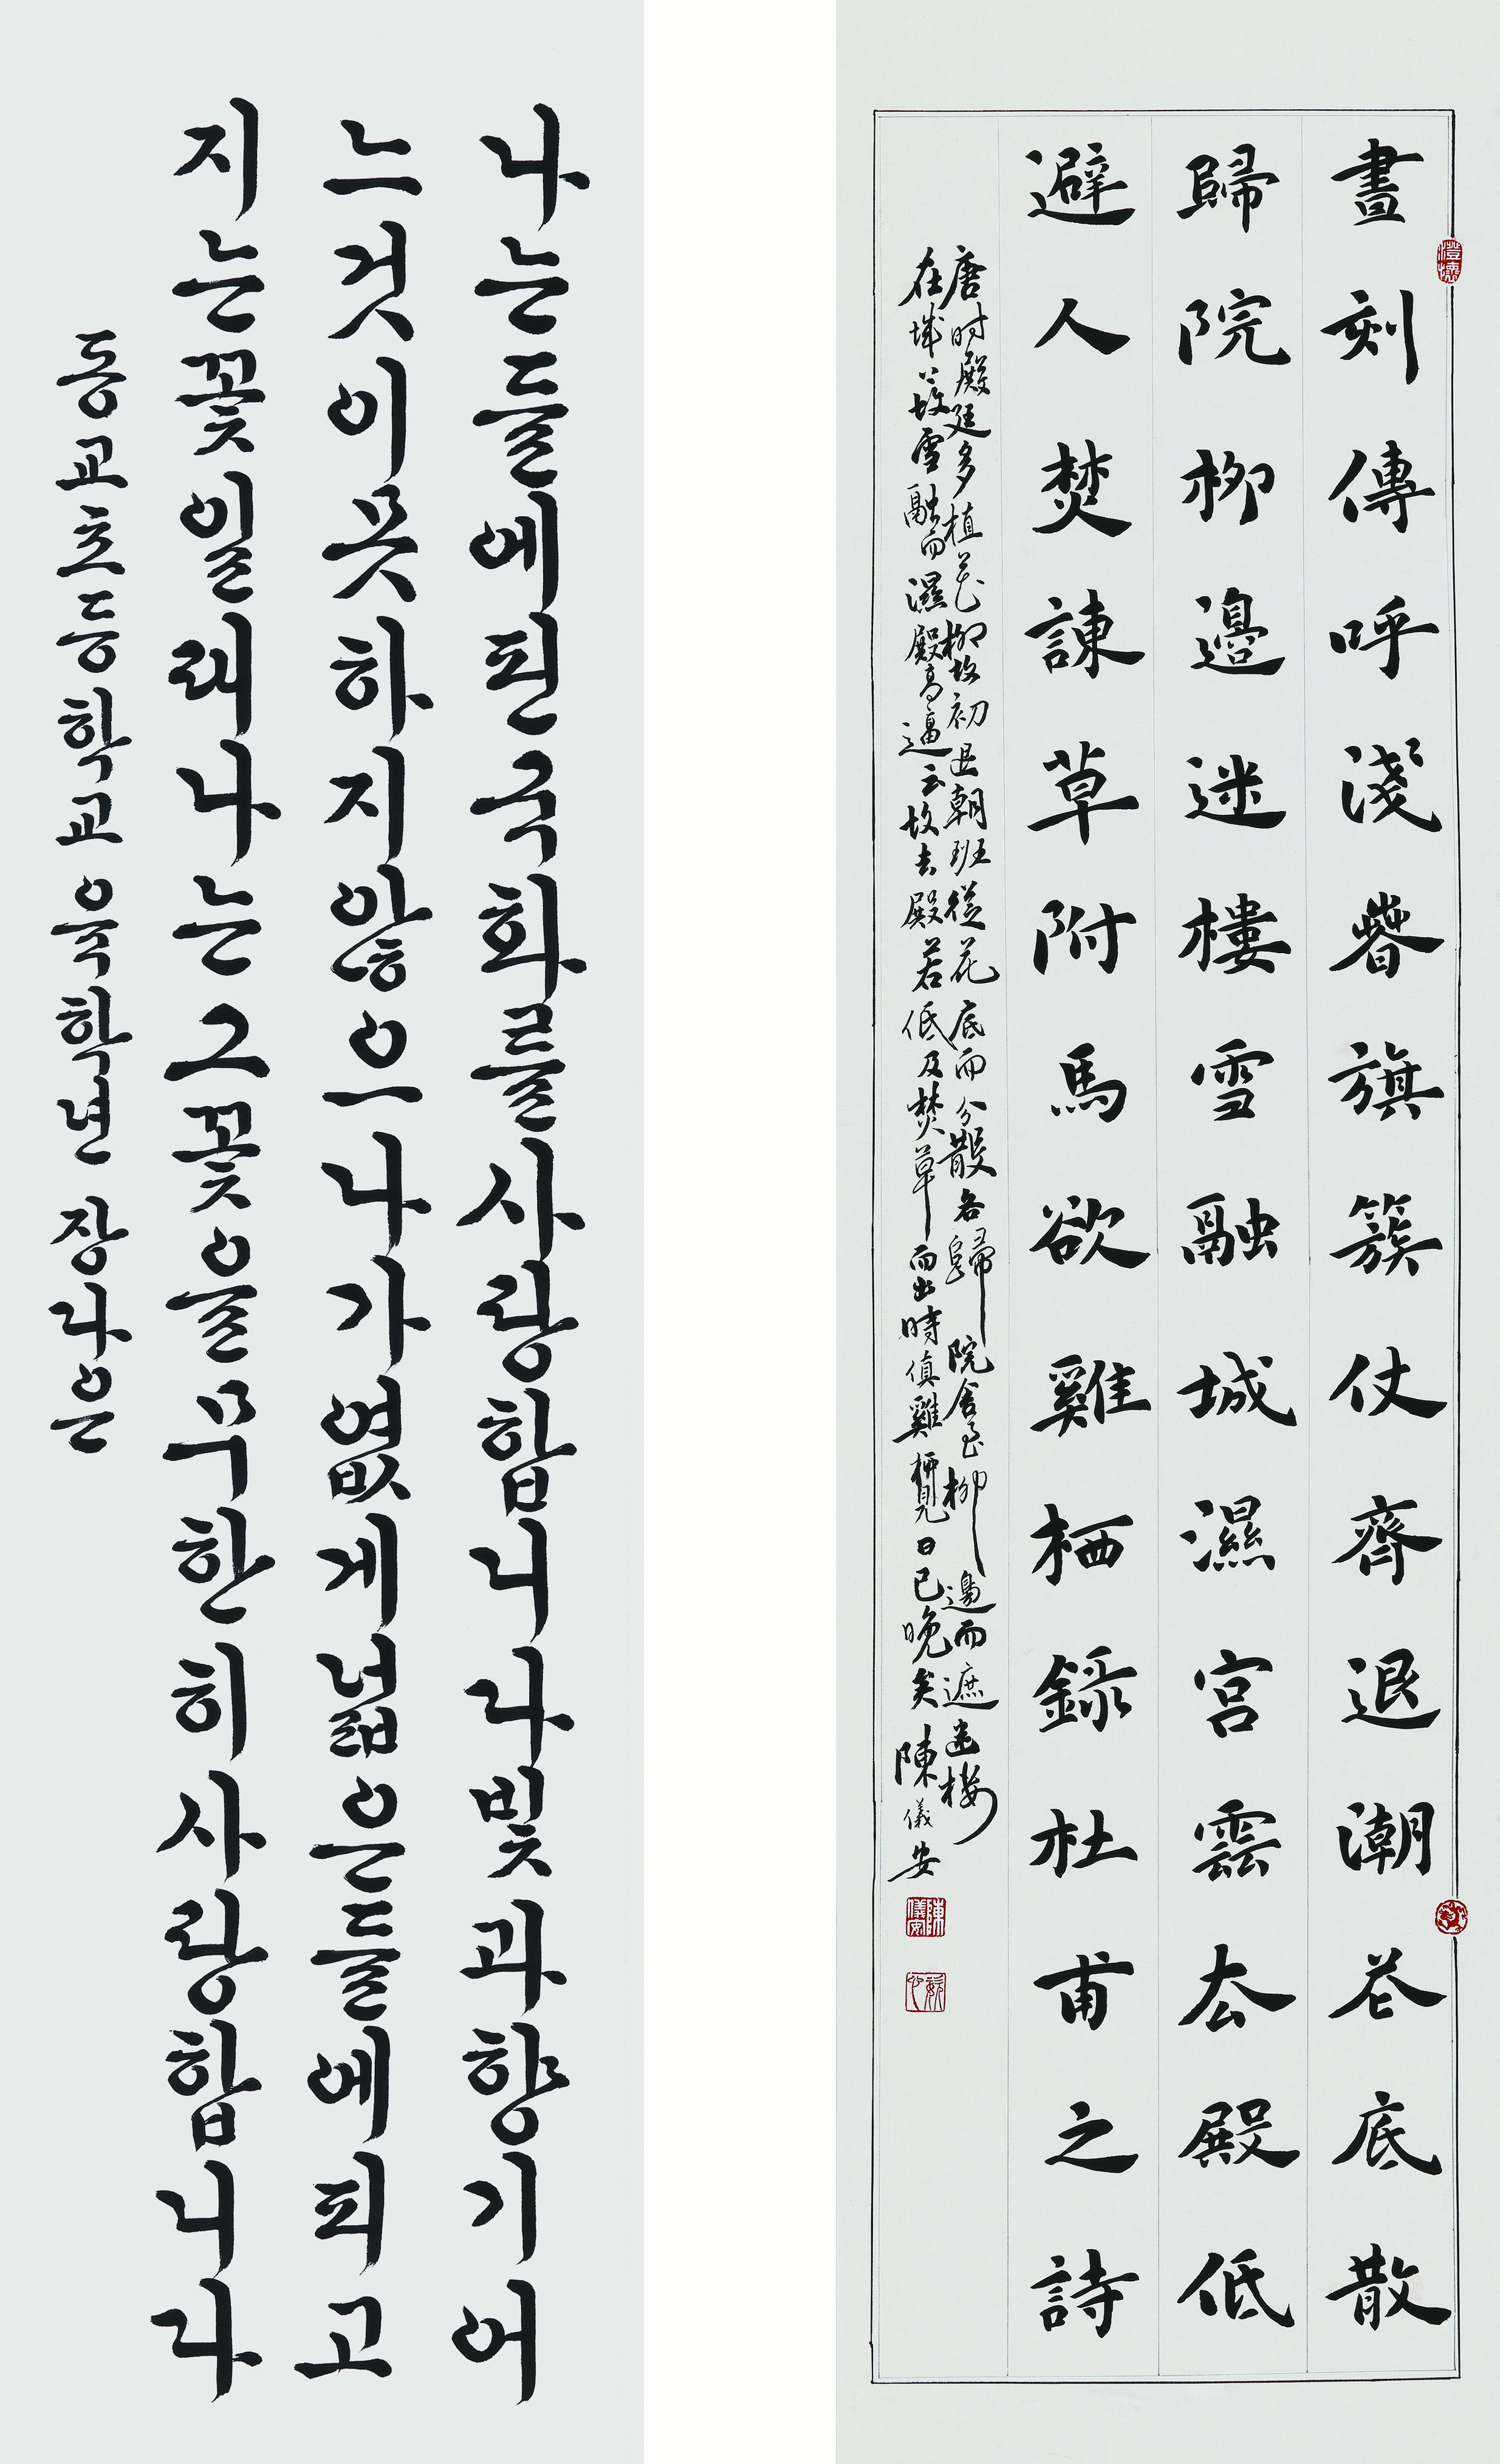 나는들에핀국화를사랑합니다빛과향기어
느것이못하지않으나가엾게넓은들에피고
지는꽃일래나는그꽃을무한히사랑합니다
동교초등학교 육학년 장다은
晝刻傳呼淺萅旗簇仗齊退潮花底散
歸院柳邊迷樓雪融城濕宮雲去殿低
避人焚諫草附馬欲雞栖錄杜甫之詩
唐时殿廷多植花柳故初退朝班從花底而分散各歸院舍至柳邊而遮迷樓
在城上故雪融而濕殿高逼云故去殿若低及焚草而出時值雞栖見日已晚矣陳儀安
澄懷
陳儀安